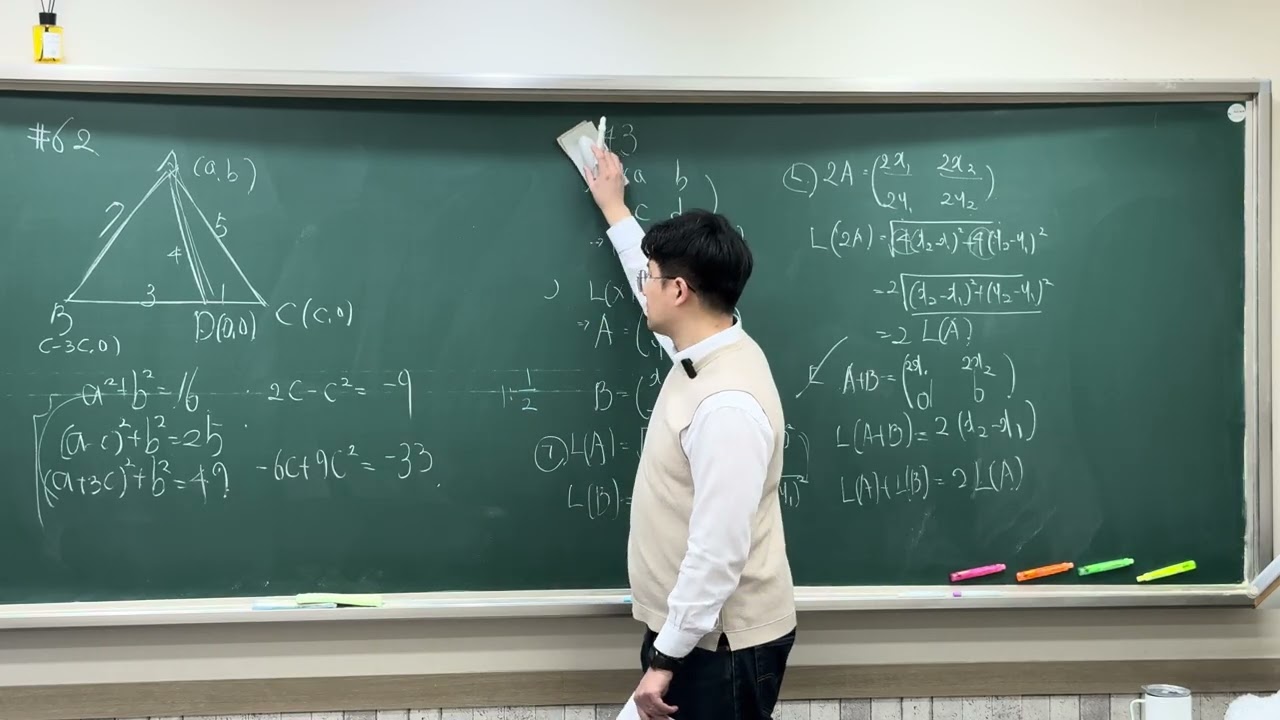 #62
(a,b)
7
5
4
3
1
B
D(0,0)
C(c,0)
(-3c,0)
a²+b²=16
(a-c)²+b²=25
(a+3c)²+b²=49
2c-c²=-9
-6c+9c²=-33
1
1·2
43
a b
c d
L(x
⇒ A=(
B=(
⑦ L(A)=
L(B)=
2A=(2x₁ 2x₂
2y₁ 2y₂)
L(2A)=√4(x₂-x₁)²+4(y₂-y₁)²
=2√(x₂-x₁)²+(y₂-y₁)²
=2 L(A)
A+B=(2x₁ 2x₂
0 b)
L(A+B)=2(x₂-x₁)
L(A)+L(B)=2L(A)